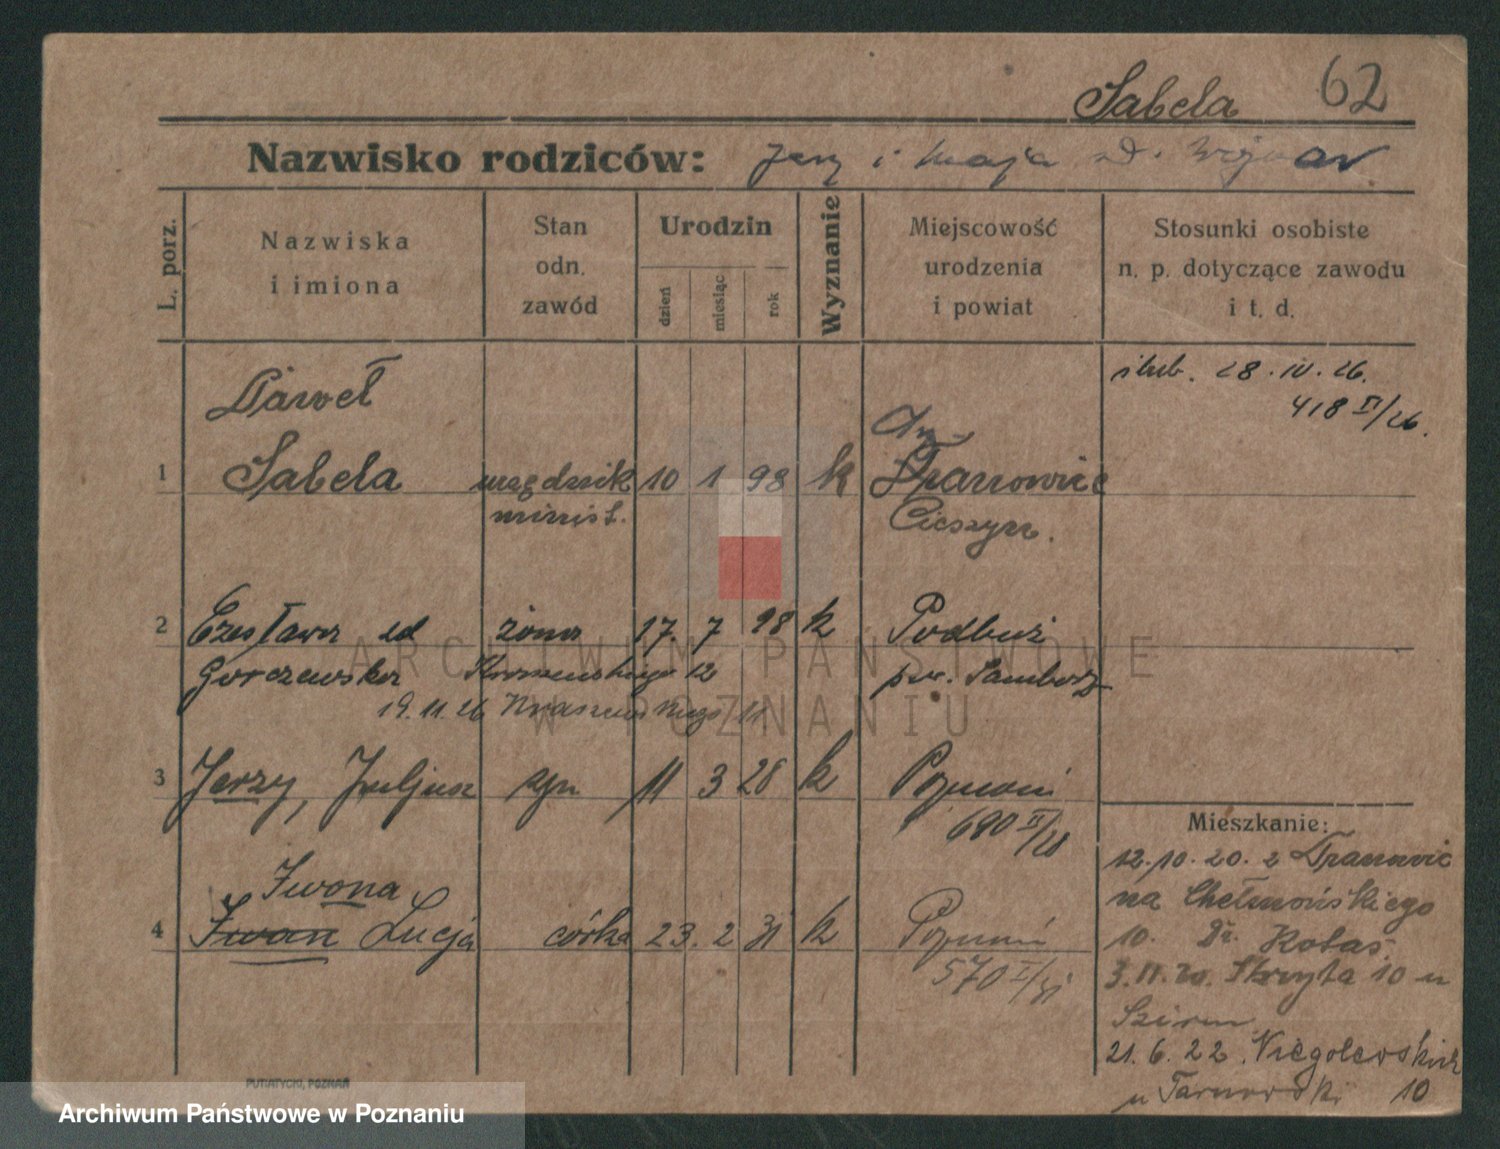 Sabela 62
Nazwisko rodziców: Jerzy i Maja
L. porz.
Nazwiska
i imiona
Stan
odn.
zawód
Urodzin
dzień
miesiąc
rok
Wyznanie
Miejscowość
urodzenia
i powiat
Stosunki osobiste
n. p. dotyczące zawodu
i t. d.
ślub. 28.IV.26.
418 II/26.
Paweł
1 Sabela urzędnik 10 1 98 k
minist. Cieszyn.
2 Czesława żona 17. 7 98 k Podbuż
Gorczewska 12 pow. Sambor
19.11.26 Kraszewskiego 11
3 Jerzy, Juljusz syn 11 3 28 k Poznań
690 II/28
Iwona
4 Iwan Lucja córka 23. 2 31 k Poznań
570 I/31
Mieszkanie:
12.10.20. z
na Chełmońskiego
10. Dr. Kolas
Skryta 10 u
21.6.22. Niegolewskich
u Tarnowski 10
PUTIATYCKI, POZNAŃ
ARCHIWUM PAŃSTWOWE
W POZNANIU
Archiwum Państwowe w Poznaniu